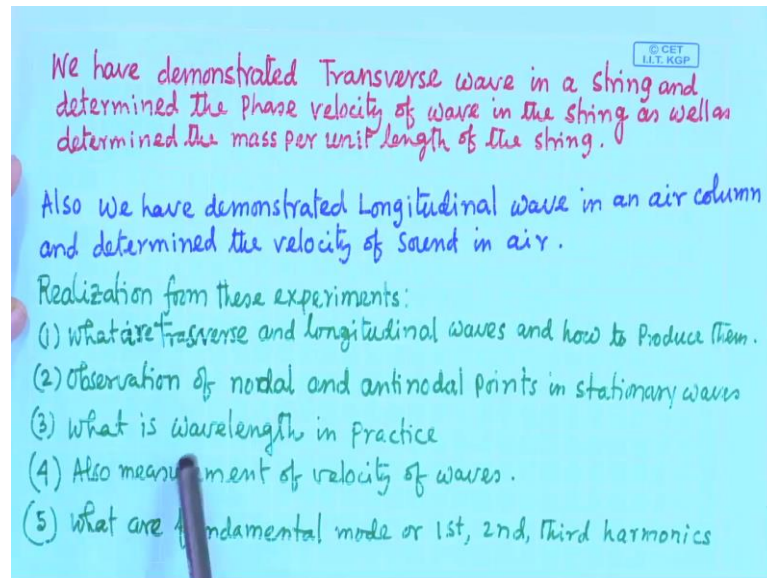 © CET
I.I.T. KGP
We have demonstrated Transverse wave in a string and
determined the Phase velocity of wave in the string as well as
determined the mass per unit length of the string.
Also we have demonstrated Longitudinal wave in an air column
and determined the velocity of sound in air.
Realization from these experiments:
(1) What are Trasverse and longitudinal waves and how to Produce Them.
(2) Observation of nodal and antinodal points in stationary waves
(3) What is wavelength in Practice
(4) Also measurement of velocity of waves.
(5) What are fundamental mode or 1st, 2nd, Third harmonics